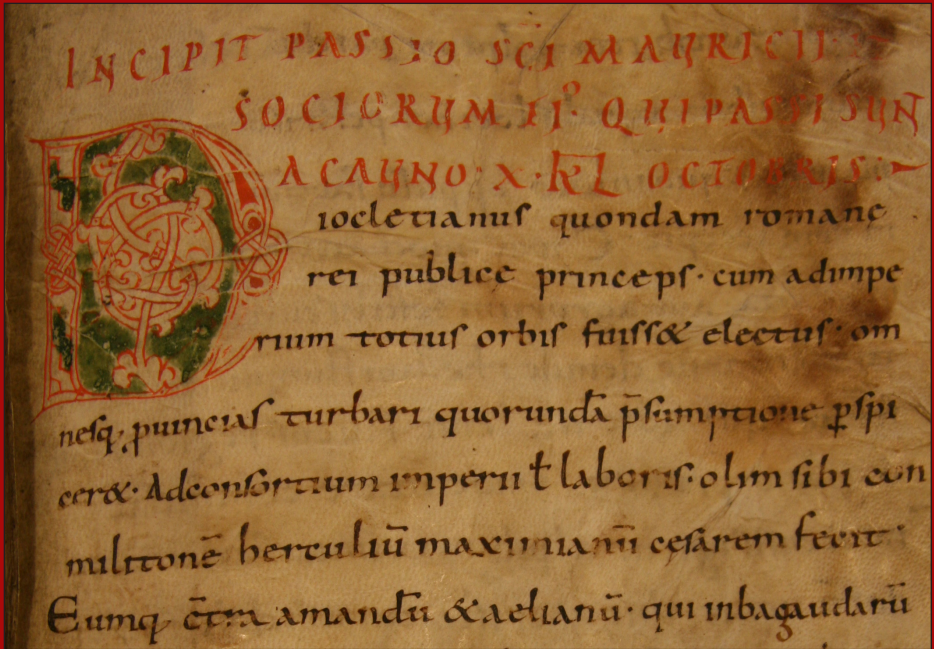 INCIPIT PASSIO SCĪ MAURICII
SOCIORUM IIº· QUI PASSI SUNT
ACAUNO· X· KL OCTOBRIS:
Diocletianus quondam romane
rei publice princeps· cum adimpe
rium totius orbis fuiss& electus· om
nesq; puincias turbari quorundā p̄sumptione p̱spi
cer&· Adconsortium imperii ł laboris· olim sibi con
militonē herculiū maximianū cęsarem fecit·
Eumq; c̄tra amandū &aelianū· qui inbagaudarū